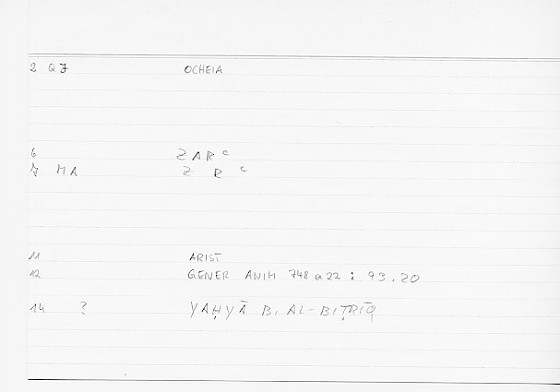 2 QJ OCHEIA
6 ZAR ᶜ
7 MA Z R ᶜ
11 ARIST
12 GENER ANIM 748 a 22 : 93.20
14 ? YAḤYĀ B. AL-BIṬRĪQ